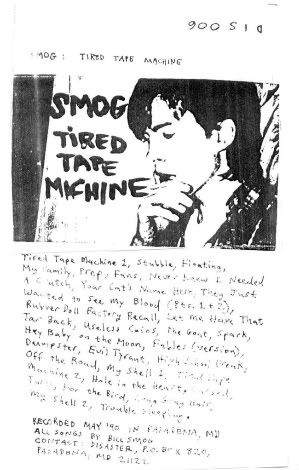 DIS 006
SMOG: TIRED TAPE MACHINE
SMOG
TIRED
TAPE
MACHINE
Tired Tape Machine 1, Stubble, Floating,
My Family, Prep, Fans, Never Knew I Needed
A Crutch, Your Cat's Name Here, They Just
Wanted to See My Blood (Pts. 1 & 2),
Rubber Doll Factory Recall, Let Me Have That
Jar Back, Useless Coins, The Goat, Spark,
Hey Baby on the Moon, Fables (version),
Dumpster, Evil Tyrant, High School Freak,
Off the Road, My Shell 1, Tired Tape
Machine 2, Hole in the Heart,
For the Bird, Long Song
My Shell 2, Trouble Sleeping.
RECORDED MAY '90 IN PASADENA, MD
ALL SONGS BY BILL SMOG
CONTACT: DISASTER, P.O. BOX 820,
PASADENA, MD 21122